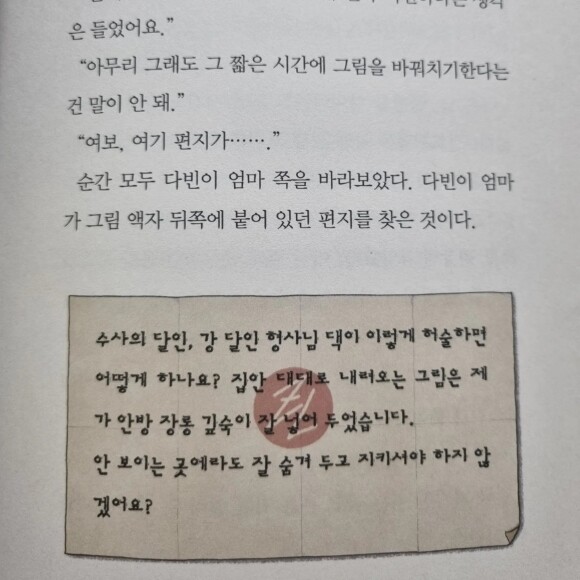 은 들었어요.”
“아무리 그래도 그 짧은 시간에 그림을 바꿔치기한다는
건 말이 안 돼.”
“여보, 여기 편지가…….”
순간 모두 다빈이 엄마 쪽을 바라보았다. 다빈이 엄마
가 그림 액자 뒤쪽에 붙어 있던 편지를 찾은 것이다.
수사의 달인, 강 달인 형사님 댁이 이렇게 허술하면
어떻게 하나요? 집안 대대로 내려오는 그림은 제
가 안방 장롱 깊숙이 잘 넣어 두었습니다.
안 보이는 곳에라도 잘 숨겨 두고 지키셔야 하지 않
겠어요?